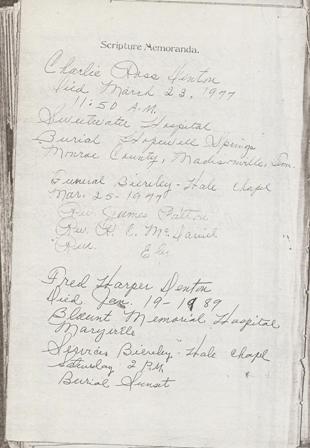 Scripture Memoranda.
Charlie Ross Denton
Died March 23, 1977
11:50 A.M.
Sweetwater Hospital
Burial Hopewell Springs
Monroe County, Madisonville, Tenn.
Funeral Biereley-Hale Chapel
Mar. 25-1977
Rev. James Patton
Rev. H. C. McDaniel
Rev.
Fred Harper Denton
Died Jan. 19-1989
Blount Memorial Hospital
Maryville
Services Biereley-Hale Chapel
Saturday 2 P.M.
Burial Sunset